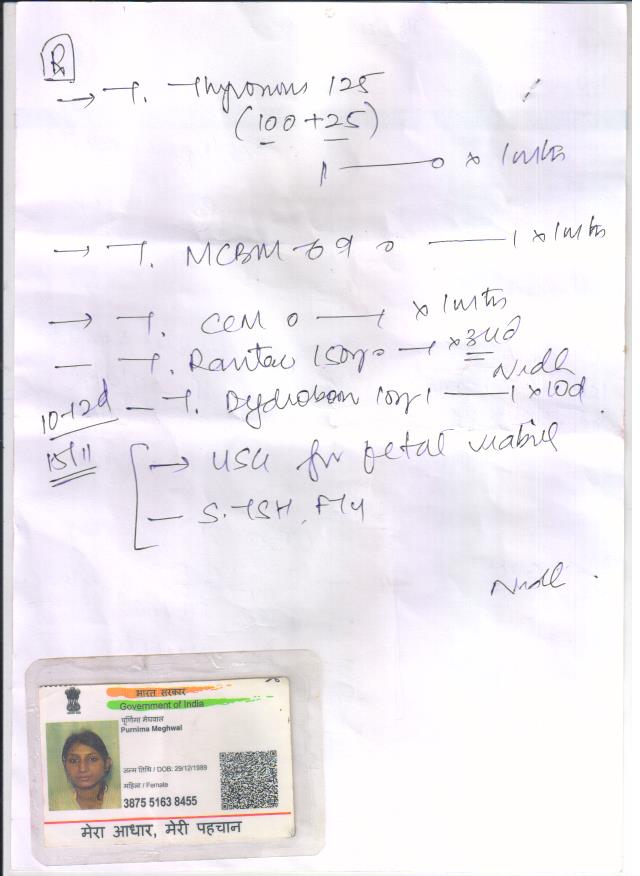 R
→ T. Thyronorm 125
(100 + 25)
1 —— 0 x 1mths
→ T. MCBM 69 0 —— 1 x 1mths
→ T. CCM 0 —— 1 x 1mths
— T. Rantac 150mg 1 x 3d
Nidh
10-12d — T. Dydroboon 10mg 1 —— 1 x 10d
15/11
→ USG for fetal viability
— S. TSH, FT4
Nidhi
भारत सरकार
Government of India
पूर्णिमा मेघवाल
Purnima Meghwal
जन्म तिथि / DOB: 29/12/1989
महिला / Female
3875 5163 8455
मेरा आधार, मेरी पहचान